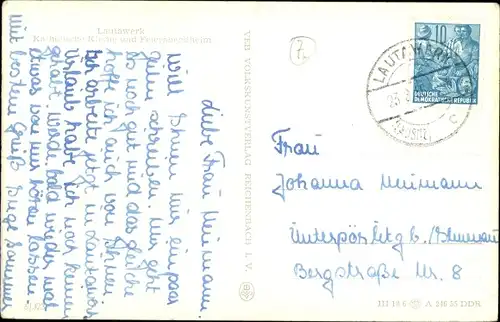 Lautawerk
Katholische Kirche und Feierabendheim
Liebe Frau Neumann.
Will Ihnen mir ein paar
Zeilen schreiben. Mir geht
es noch gut und das gleiche
hoffe ich auch von Ihnen
Ich arbeite jetzt in Lautawerk
Urlaub habe ich noch keinen
gehabt. Werde bald wieder mal
etwas von mir hören lassen.
Mit bestem Gruß Inge Sommer
VEB VOLKSKUNSTVERLAG REICHENBACH I. V.
10
DEUTSCHE
DEMOKRATISCHE REPUBLIK
LAUTAWERK
c
Frau
Johanna Neumann
Unterpörlitz b/Ilmenau
Bergstraße Nr. 8
III 18 6 A 248 55 DDR